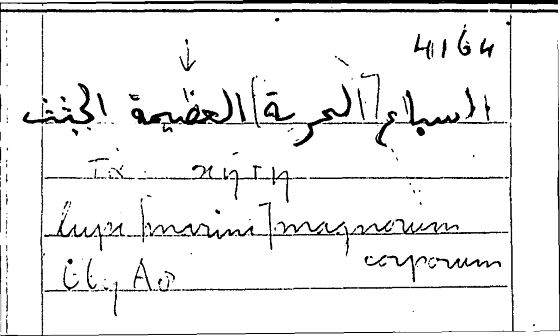 4164
السباع [البحرية] العظيمة الجثث
τὰ κήτη
lupi [marini] magnorum
corporum